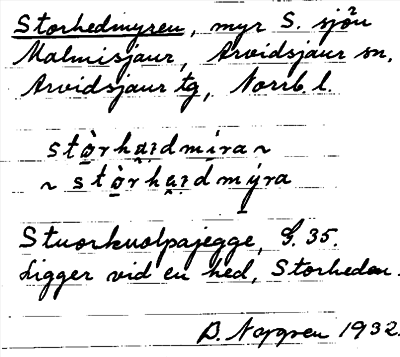 Storhedmyren, myr S. sjön
Malmisjaur, Arvidsjaur sn.
Arvidsjaur tg, Norrb. l.
stòrhaidmira ~
~ stòrhaidmýra
Stuorkuolpajegge, G. 35.
Ligger vid en hed, Storheden.
1932.